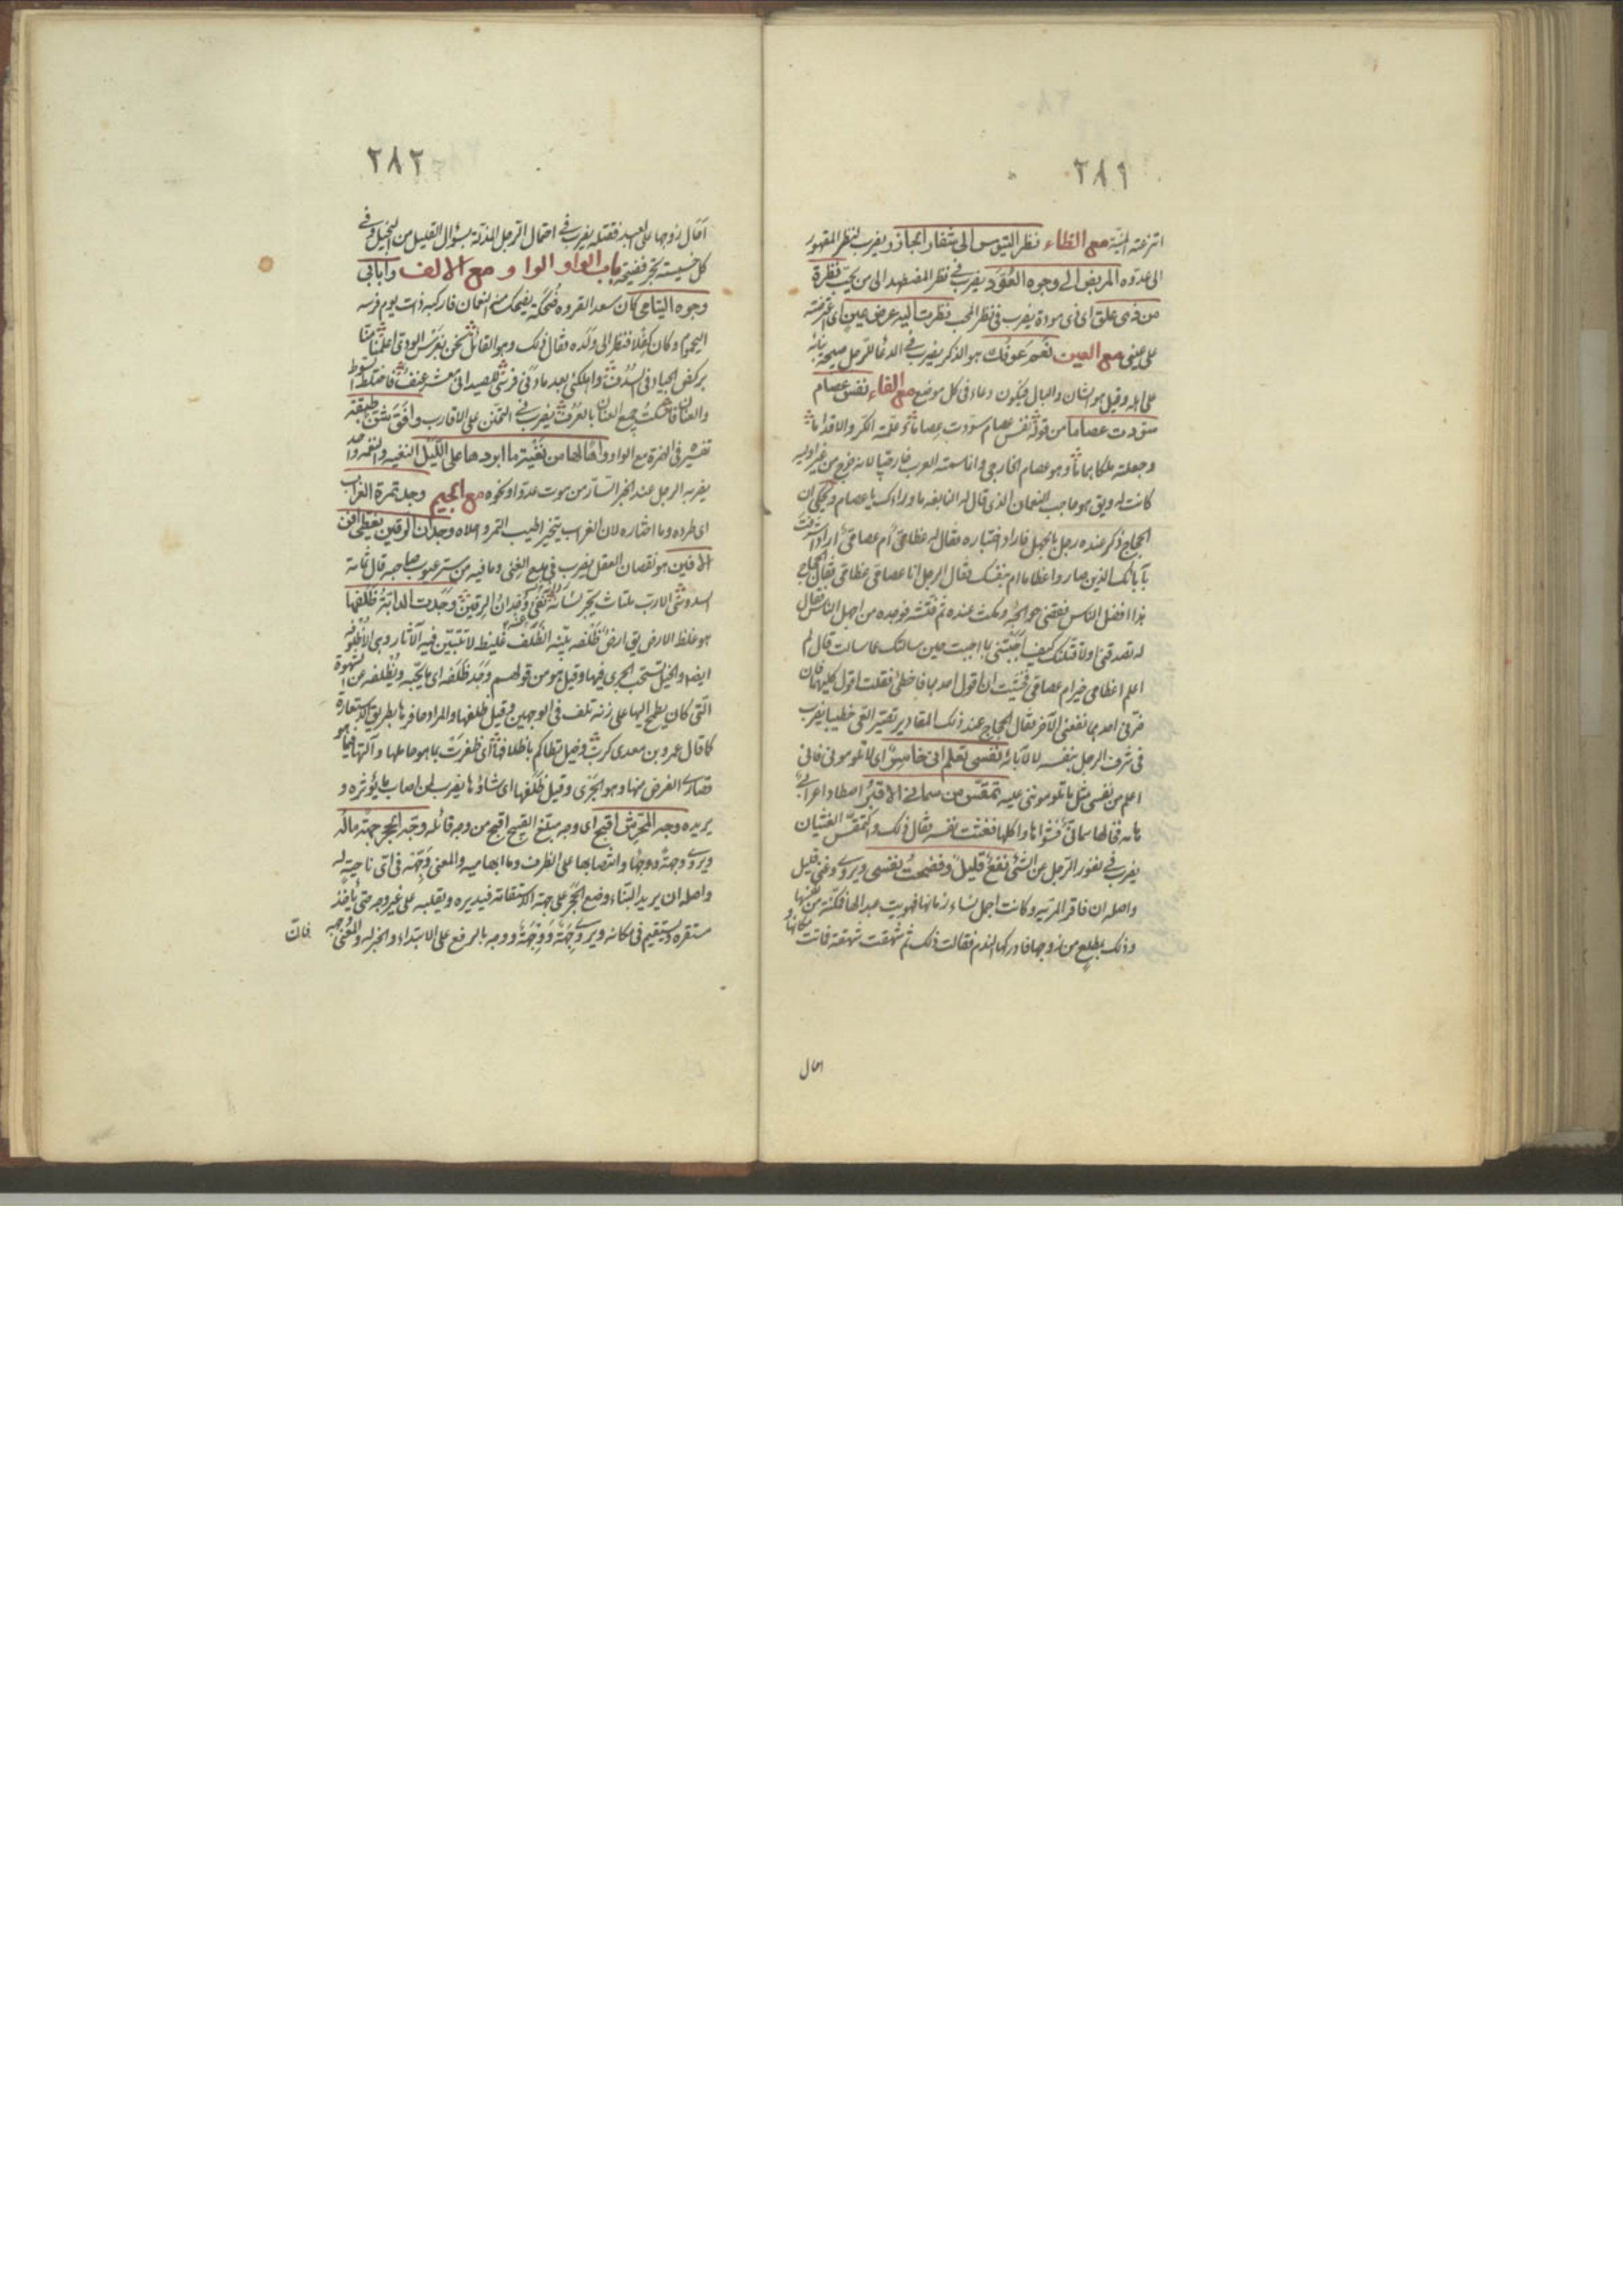 ٢٨١
انتزعته المنية مع الظاء نظر التيوس الى شفار الجازر يضرب لنظر المقهور
الى عدوه المريض الى وجوه العُوَّد يضرب في نظر المضطهد الى من يحب نظرة
من ذى علق اى ذى مودة يضرب فى نظر المحب نظرت اليه عرض عين اى اعترضته
على عينى مع العين نعم عوفك هو الذكر يضرب في الدعا للرجل
على اهله وقيل هو الشان والبال فيكون دعاء فى كل موضع مع الفاء نفس عصام
سوّدت عصاما من قوله نفس عصام سوّدت عصاما وعلّمته الكرّ والاقداما
وجعلته ملكا هماما وهو عصام الخارجي وانما سمته العرب خارجيا لانه خرج من غير اولية
كانت له ويق هو حاجب النعمان الذى قال له النابغه ما وراءك يا عصام ويحكى ان
الحجاج ذكر عنده رجل بالجهل فاراد اختباره فقال له عظامىّ ام عصامىّ اراد اشرفت
بآبائك الذين صاروا عظاما ام بنفسك فقال الرجل انا عصامى عظامى فقال الحجاج
هذا افضل الناس فقضى حوائجه ومكث عنده ثم فتشه فوجده من اجهل الناس فقال
له تصدقنى او لاقتلنك كيف اجبتنى بما اجبت حين سالتك عما سالت قال لم
اعلم اعظامى خير ام عصامى فخشيت ان اقول احدهما فاخطئ فقلت اقول كليهما فان
ضرّنى احدهما نفعنى الآخر فقال الحجاج عند ذلك المقادير تصيّر العى خطيبا يضرب
فى شرف الرجل بنفسه لا لآبائه نفسى تعلم انى خاسر اى لا تلومونى فانى
اعلم من نفسى مثل ما تلوموننى عليه تمقس من سمانى الاقبر اصطاد اعرابى
هامه فخالها سمانى فشواها واكلها فغثت نفسه فقال ذلك والتمقس الغثيان
يضرب في نفور الرجل عن الشئ نفع قليل وفضحت نفسى ويروى وغنى قليل
واصله ان فاقر المرّيه وكانت اجمل نساء زمانها فهويت عبدا لها فمكنته من نفسها
وذلك بمطلع من زوجها فادركها الندم فقالت ذلك ثم شهقت شهقة فماتت مكانها و
امال
٢٨٢
امال زوجها على العبد فقتله يضرب في احتمال الرجل المذلة بسؤال القليل من البخيل وفى
كل خسيسة يجر فضيحة باب الواو الواو مع الالف وابابى
وجوه اليتامى كان سعد القرقره ضُحْكة يضحك منه النعمان فاركبه ذات يوم فرسه
اليحموم وكان فنظر الى ولده فقال ذلك وهو القائل نحن بغرس الودى اعلمنا منّا
بركض الجياد فى السدف
يضرب في التحنّن على الاقارب وافق شن طبقه
تفسيره فى الهمزة مع الواو واها لها من نغية ما ابردها على الكبد النغيه والنغمه واحد
يضربه الرجل عند الخبر السّارّ من موت عدو او نحوه مع الجيم وجد تمرة الغراب
اى طرده وما اختاره لان الغراب يتخير اطيب التمر واحلاه وجدان الرقين يغطى افن
الافين هو نقصان العقل يضرب في مدح الغنى وما فيه من ستر عيوب صاحبه قال ثمامة
السدوسى وجدان الرقين وجدت الدابّة ظلفها
هو غلظ الارض يق ارض ظلفه بيّنه الظلف غليظ لا تتبيّن فيه الآثار وهى الاظلوفه
ايضا والخيل تستحب الجرى فيها وقيل هو من قولهم وجد ظلفه اى ما يحبّه ويظلفه عن الشهوة
التى كان يطمح اليها على زنه تلف فى الوجهين وقيل ظلفها والمراد حافرها بطريق الاستعارة
كما قال عمرو بن معدى كرب وخيل تطاكم باظلافها اى ظفرت بما هو حاملها وآلتها فيما هو
قصارى الغرض منها وهو الجرى وقيل ظلفها اى شاؤها يضرب لمن اصاب ما يؤثره و
يريده وجه المحرّش اقبح اى وجه مبلّغ القبيح اقبح من وجه قائله وجّه الحجر جهة ماله
ويروى وجهةً ووجهًا وانتصابها على الظرف وما ابهاميه والمعنى وَجِّهْه فى اى ناحية له
واصله ان يريد البنّاء وضع الحجر على جهة الاستقامة فيديره ويقلبه على غير وجه حتى ياخذ
مستقره ويستقيم فى مكانه ويروى جهةٌ ووجهةٌ ووجه بالرفع على الابتداء والخبر له والمعنى وجه
فان